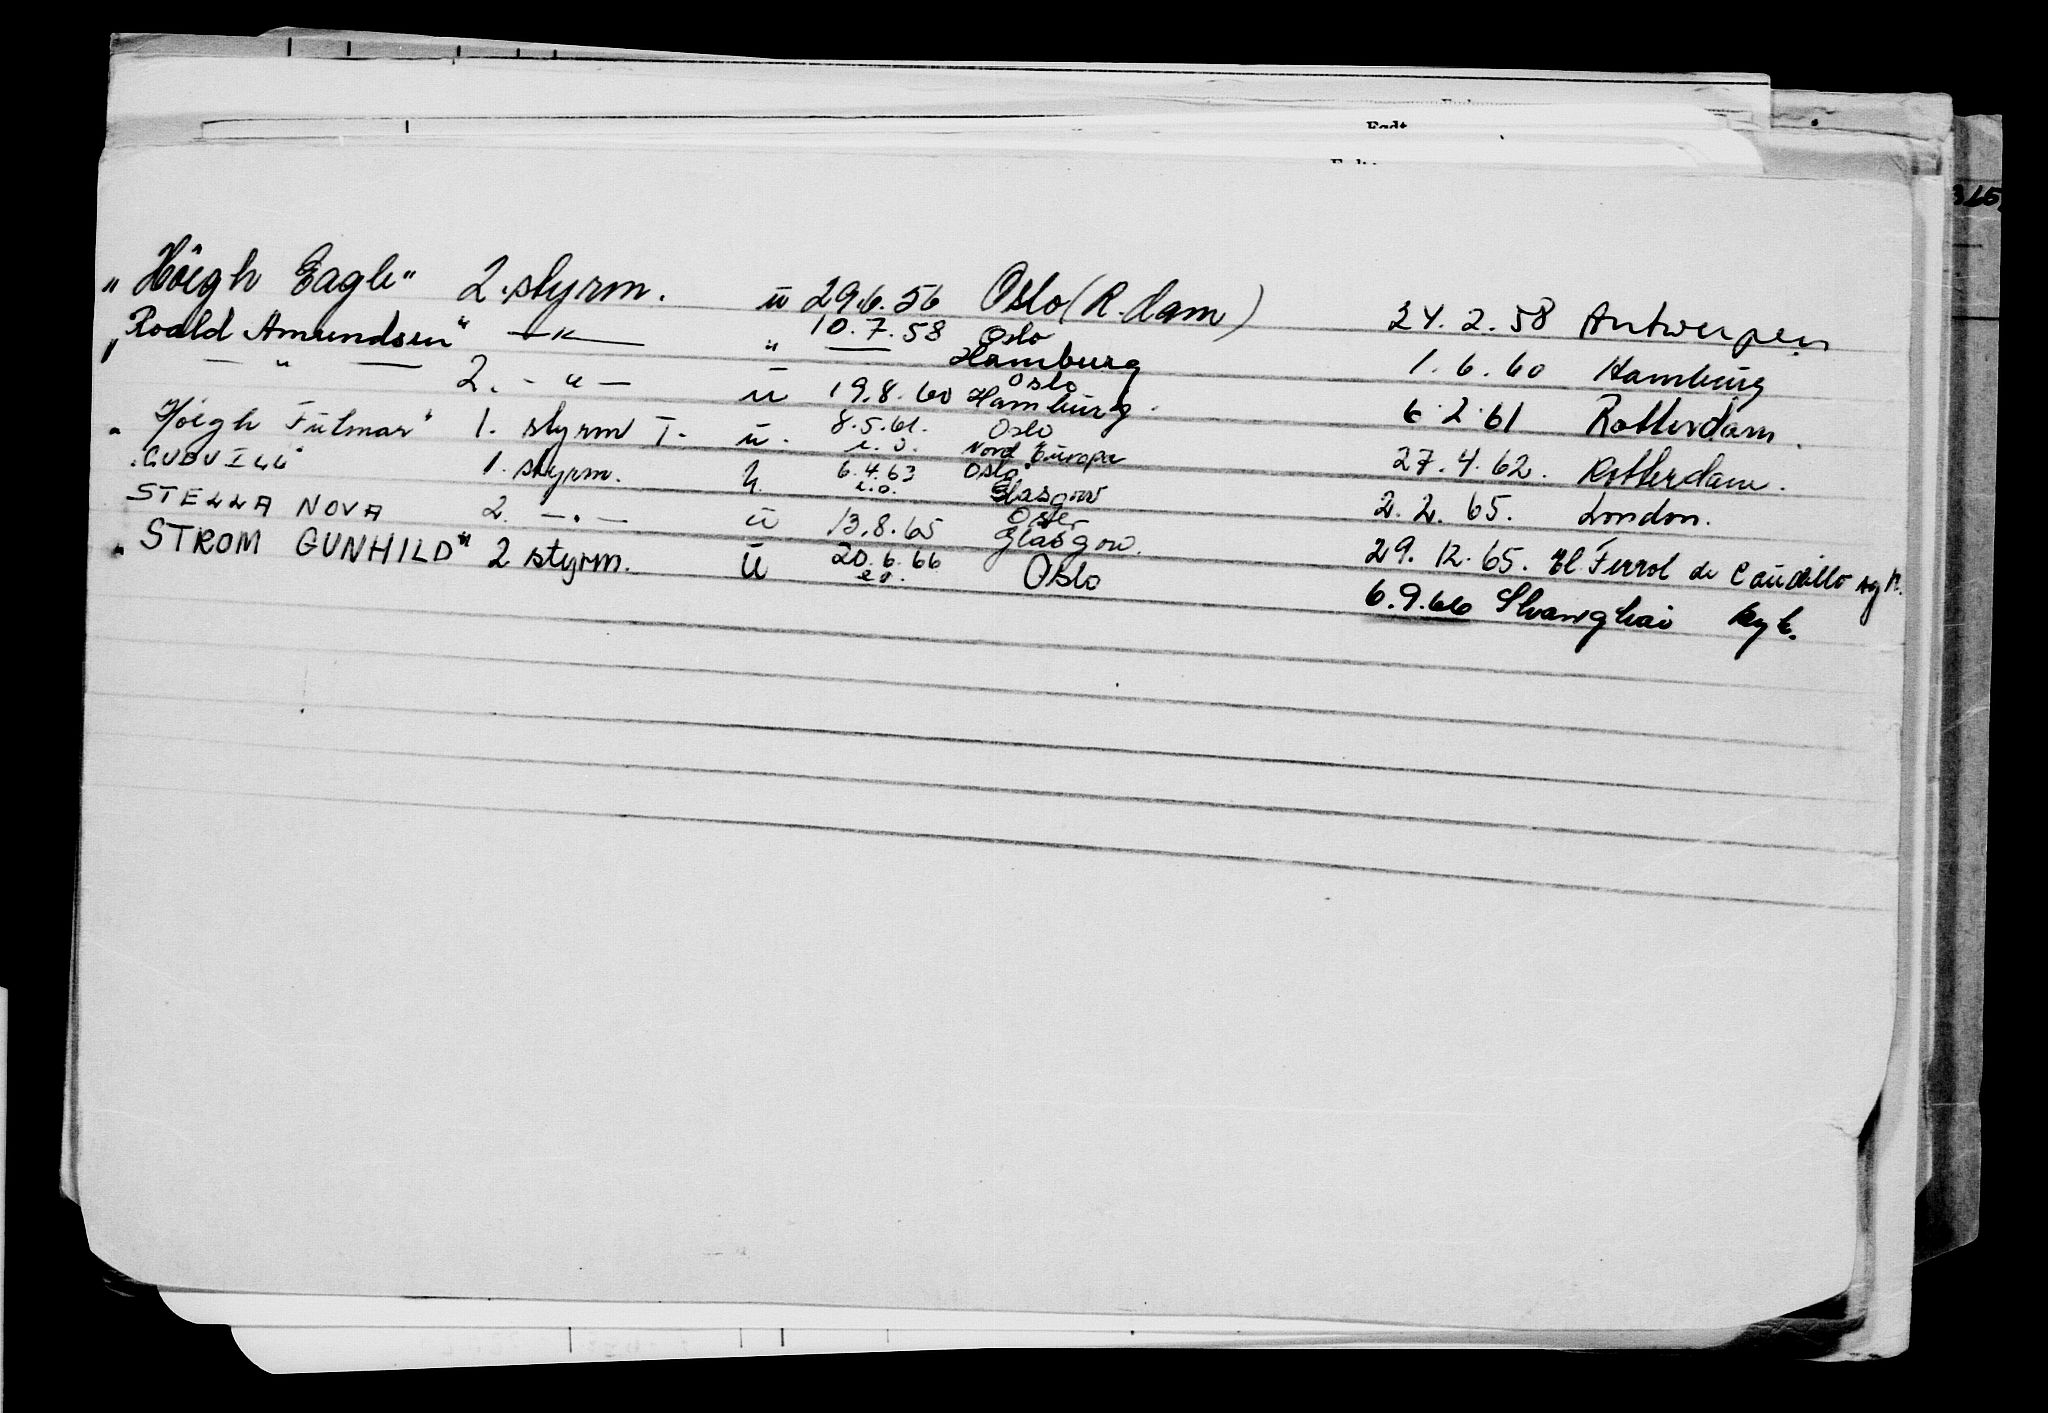 Født
315
„Höegh Eagle" 2. styrm. u 29.6.56 Oslo (R.dam) 24.2.58 Antwerpen
„Roald Amundsen" —"— " 10.7.58 Oslo Hamburg 1.6.60 Hamburg
— " — 2. - " — u 19.8.60 Oslo Hamburg. 6.2.61 Rotterdam.
„Höegh Fulmar" 1. styrm T. u. 8.5.61. e.o. Oslo Nord Europa 27.4.62. Rotterdam.
"GUDVILL" 1. styrm. u. 6.4.63 e.o. Oslo Glasgow 2.2.65. London.
STELLA NOVA 2. —"— u 13.8.65 Oslo Glasgow. 29.12.65. El Ferrol de Caudillo
„STROM GUNHILD" 2 styrm. u 20.6.66 e.o. Oslo 6.9.66 Shanghai